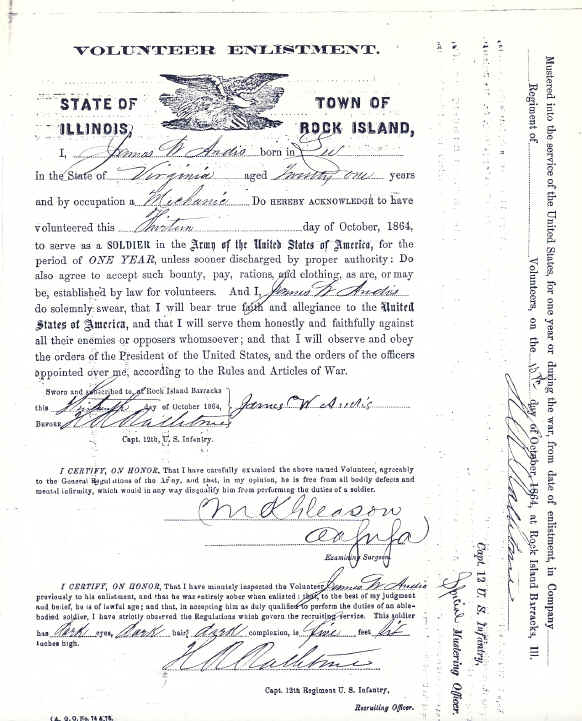 VOLUNTEER ENLISTMENT.
STATE OF
ILLINOIS,
TOWN OF
ROCK ISLAND,
I, James W Andis born in
in the State of Virginia aged Twenty one years
and by occupation a Mechanic Do HEREBY ACKNOWLEDGE to have
volunteered this Thirteen day of October, 1864,
to serve as a SOLDIER in the Army of the United States of America, for the
period of ONE YEAR, unless sooner discharged by proper authority: Do
also agree to accept such bounty, pay, rations, and clothing, as are, or may
be, established by law for volunteers. And I, James W Andis
do solemnly swear, that I will bear true faith and allegiance to the United
States of America, and that I will serve them honestly and faithfully against
all their enemies or opposers whomsoever; and that I will observe and obey
the orders of the President of the United States, and the orders of the officers
appointed over me, according to the Rules and Articles of War.
Sworn and subscribed to, at Rock Island Barracks
this day of October 1864,
James W Andis
BEFORE
Capt. 12th, U. S. Infantry.
I CERTIFY, ON HONOR, That I have carefully examined the above named Volunteer, agreeably
to the General Regulations of the Army, and that, in my opinion, he is free from all bodily defects and
mental infirmity, which would in any way disqualify him from performing the duties of a soldier.
M K Gleason
Examining Surgeon.
I CERTIFY, ON HONOR, That I have minutely inspected the Volunteer, James W Andis
previously to his enlistment, and that he was entirely sober when enlisted; that, to the best of my judgment
and belief, he is of lawful age; and that, in accepting him as duly qualified to perform the duties of an able-
bodied soldier, I have strictly observed the Regulations which govern the recruiting service. This soldier
has dark eyes, dark hair, dark complexion, is five feet six
inches high.
Capt. 12th Regiment U. S. Infantry,
Recruiting Officer.
(A. G. O. No. 74 & 76.
Mustered into the service of the United States, for one year or during the war, from date of enlistment, in Company
Regiment of Volunteers, on the 13th day of October, 1864, at Rock Island Barracks, Ill.
Capt. 12 U. S. Infantry,
Mustering Officer.